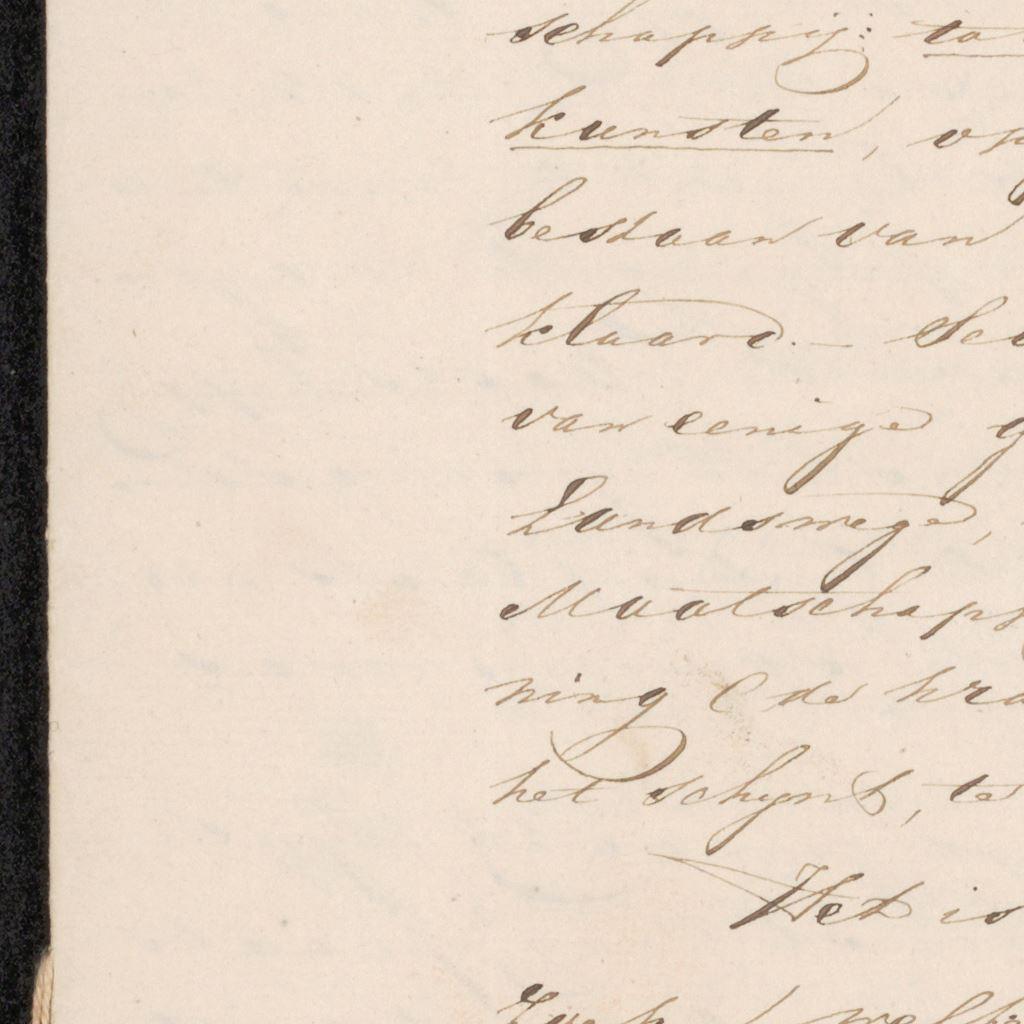 schappij: to
kunsten, op
bestaan van
klaard. —
van eenige g
Landswege,
Maatschapp
ning de kra
het schynt, te
Het is